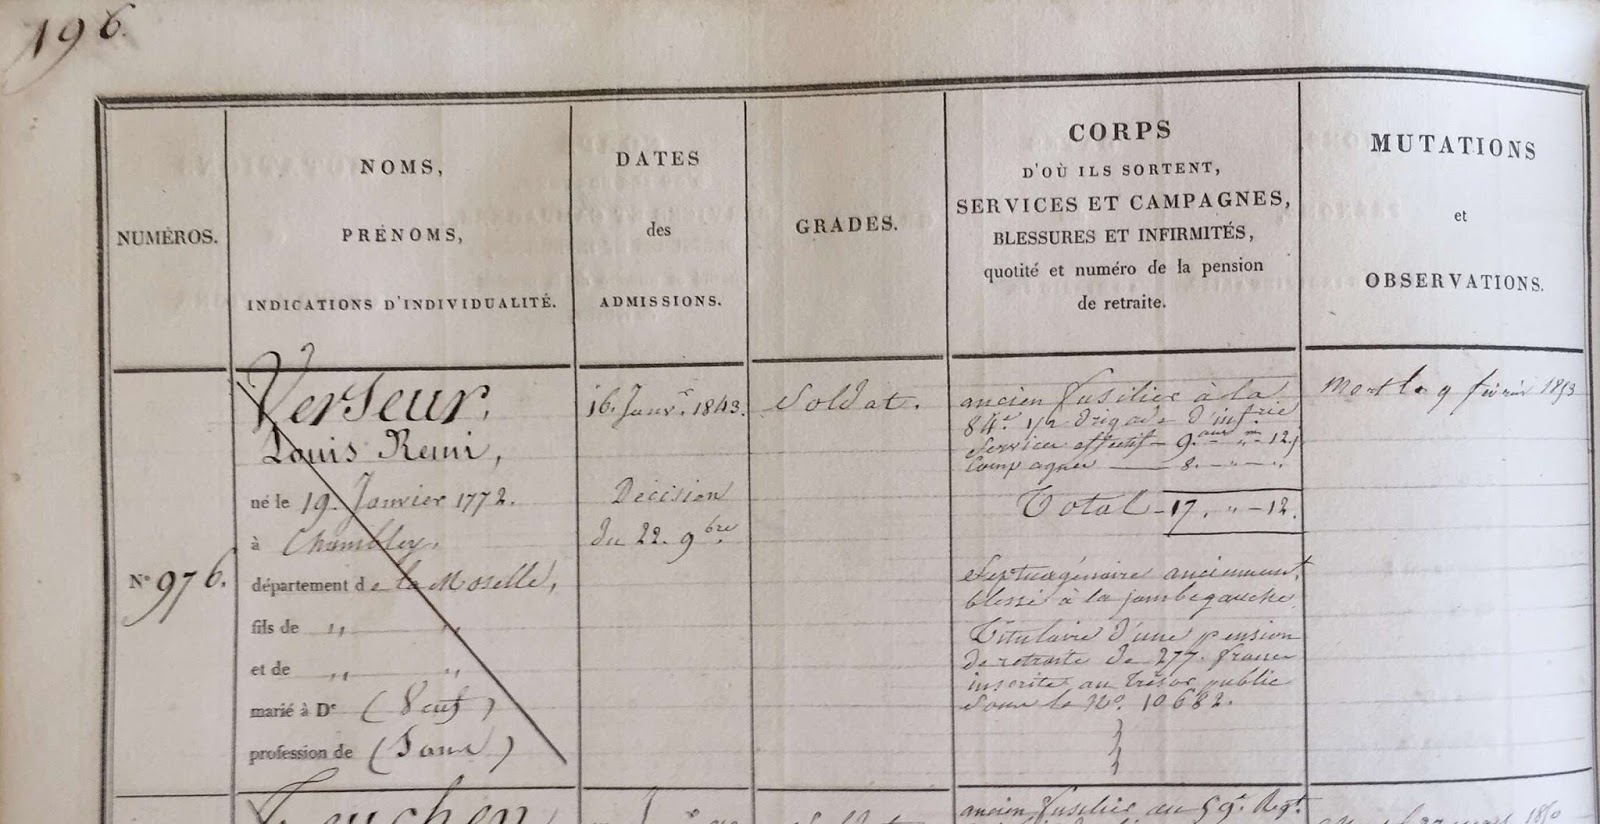 196.
NUMÉROS.
NOMS,
PRÉNOMS,
INDICATIONS D'INDIVIDUALITÉ.
DATES
des
ADMISSIONS.
GRADES.
CORPS
D'OÙ ILS SORTENT,
SERVICES ET CAMPAGNES,
BLESSURES ET INFIRMITÉS,
quotité et numéro de la pension
de retraite.
MUTATIONS
et
OBSERVATIONS.
N° 976.
Verseur,
Louis Remi,
né le 19. Janvier 1772.
à Chambley,
département de la Moselle,
fils de " "
et de " "
marié à De (Veuf)
profession de (Sans)
16. Janv.r 1843.
Décision
du 22. 9bre
Soldat.
ancien fusilier à la
84e 1/2 Brigade d'infrie
Service effectif - 9.ans " m - 12.j
Campagnes — 8. - " - "
Total - 17. " - 12.
Septuagénaire anciennement
blessé à la jambe gauche.
Titulaire d'une pension
de retraite de 277. francs
inscrite au trésor public
sous le No. 10682.
Mort le 9 février 1853
ancien fusilier au 59e Régt